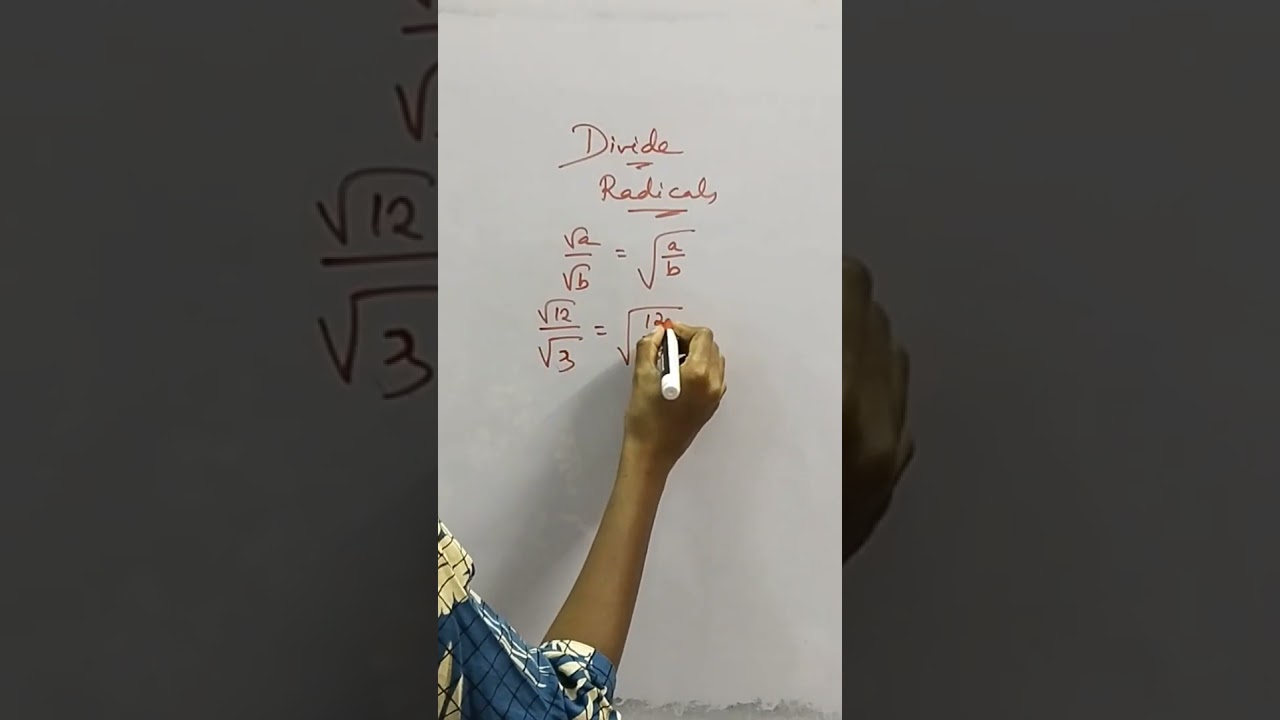 Divide
Radicals
√a/√b = √(a/b)
√12/√3 = √12